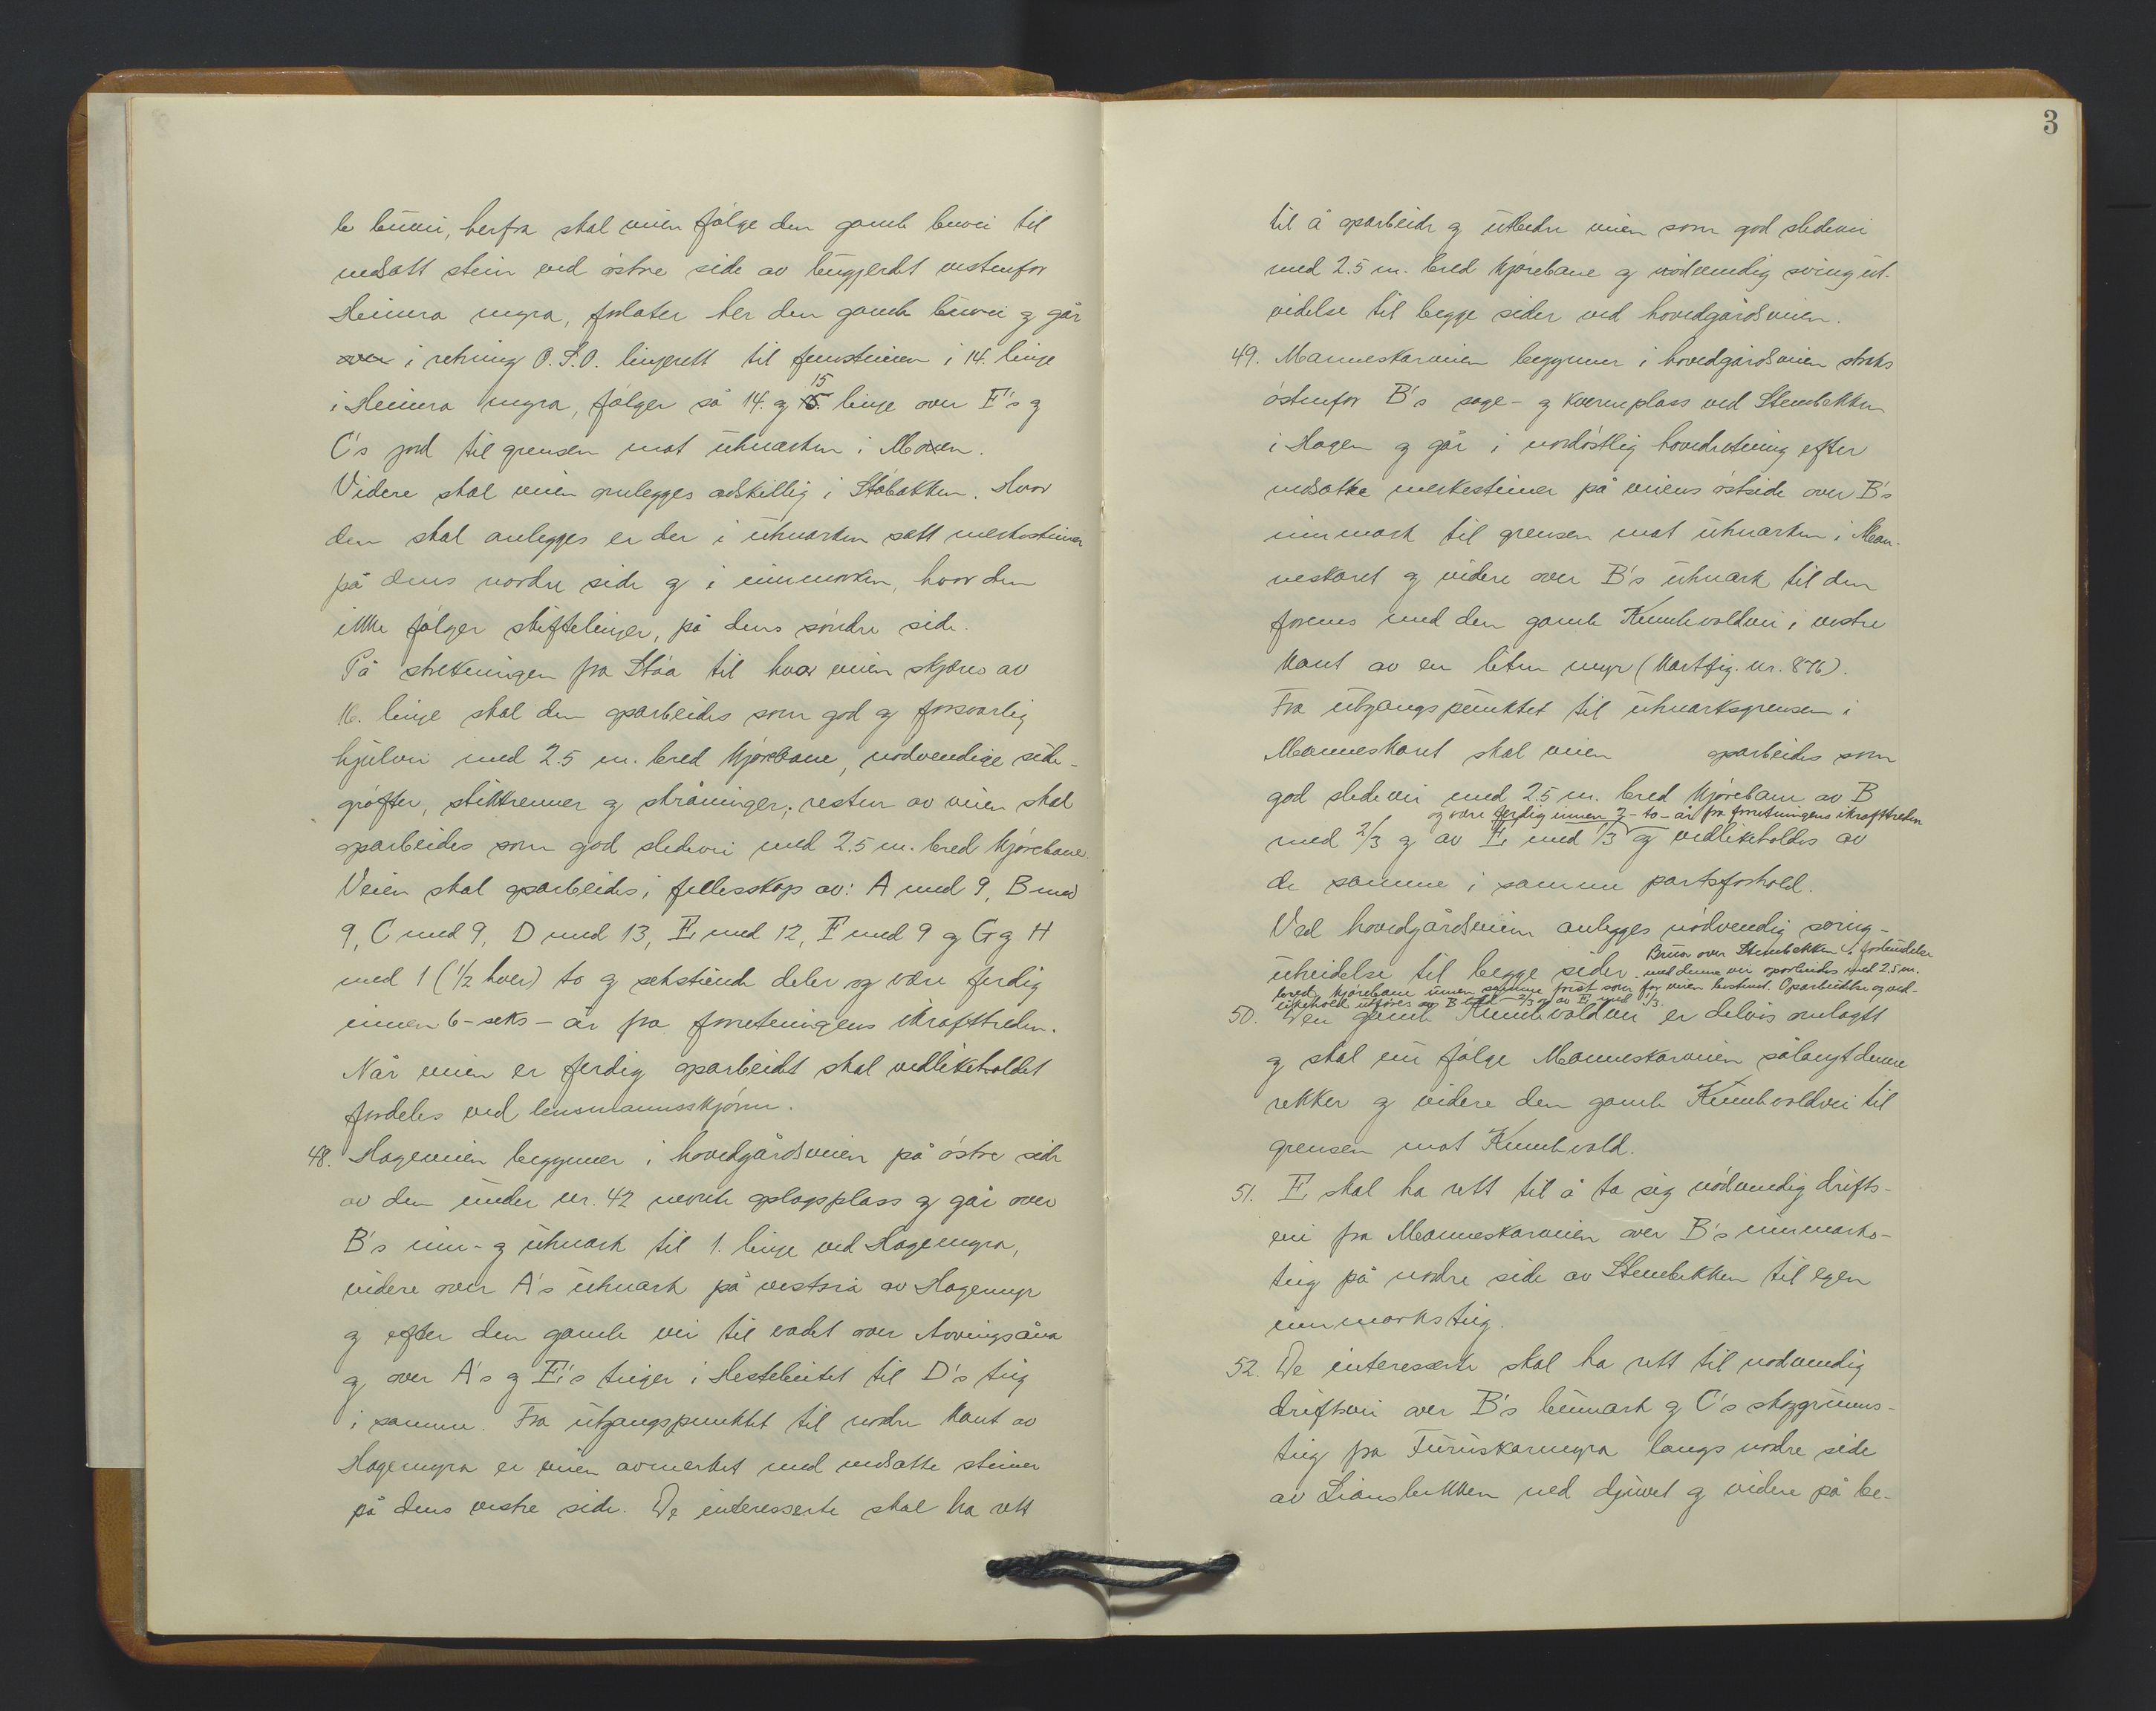 le buvei, herfra skal veien følge den gamle buvei til
nedsatt stein ved østre side av bugjerdet vestenfor
Heimra myra, forlater her den gamle buvei og går
over i retning O.S.O. linjerett til femsteinen i 14. linje
i Heimra myra, følger så 14. og 15. 15 linje over F's og
C's jord til grensen mot utmarken i Moxen.
Videre skal veien omlegges adskillig i Støbakken. Hvor
den skal anlegges er der i utmarken satt merkesteiner
på dens nordre side og i innmarken, hvor den
ikke følger skiftelinjer, på dens søndre side.
På strekningen fra Støa til hvor veien skjæres av
16. linje skal den oparbeides som god og forsvarlig
hjulvei med 2.5 m. bred kjørebane, nødvendige side-
grøfter, stikkrenner og skråninger; resten av veien skal
oparbeides som god sledevei med 2.5 m. bred kjørebane.
Veien skal oparbeides i fellesskap av: A med 9, B med
9, C med 9, D med 13, E med 12, F med 9 og G og H
med 1 (1/2 hver) to og sekstiende deler og være ferdig
innen 6 - seks - år fra forretningens ikrafttreden.
Når veien er ferdig oparbeidt skal vedlikeholdet
fordeles ved lensmannsskjønn.
48. Hageveien begynner i hovedgårdsveien på østre side
av den under nr. 42 nevnte oplagsplass og går over
B's inn- og utmark til 1. linje ved Hagemyra,
videre over A's utmark på vestsia av Hagemyr
og efter den gamle vei til vadet over Avvingsåna
og over A's og E's teiger i Hesteleitet til D's teig
i samme. Fra utgangspunktet til nordre kant av
Hagemyra er veien avmerket med nedsatte steiner
på dens vestre side. De interesserte skal ha rett
3
til å oparbeide og utbedre veien som god sledevei
med 2.5 m. bred kjørebane og nødvendig svingut-
videlse til begge sider ved hovedgårdsveien.
49. Manneskarveien begynner i hovedgårdsveien straks
østenfor B's sage- og kvernplass ved Stembekken
i Hagen og går i nordøstlig hovedretning efter
nedsatte merkesteiner på veiens østside over B's
innmark til grensen mot utmarken i Man-
neskaret og videre over B's utmark til den
forenes med den gamle Kumlevoldvei i vestre
kant av en liten myr (Kartfig. nr. 876).
Fra utgangspunktet til utmarksgrensen i
Manneskaret skal veien oparbeides som
god sledevei med 2.5 m. bred kjørebane av B
og være ferdig innen 2 - to - år fra forretningens ikrafttreden
med 2/3 og av E med 1/3 og vedlikeholdes av
de samme i samme partsforhold.
Ved hovedgårdsveien anlegges nødvendig sving-
utvidelse til begge sider. Brua over Stembekken i forbindelse
med denne vei oparbeides med 2.5 m.
bred kjørebane innen samme frist som for veien bestemt. Oparbeidelse og ved-
likehold utføres av B med 2/3 og av E med 1/3.
50. Den gamle Kumlevoldvei er delvis omlagt
og skal nu følge Manneskarveien sålangt denne
rekker og videre den gamle Kumlevoldvei til
grensen mot Kumlevold.
51. E skal ha rett til å ta sig nødvendig drifts-
vei fra Manneskarveien over B's innmarks-
teig på nordre side av Stembekken til egen
innmarksteig.
52. De interesserte skal ha rett til nødvendig
driftsvei over B's bumark og C's skoggrunns-
teig fra Furuskarmyra langs nordre side
av Liansbekken ned djuvet og videre på be-